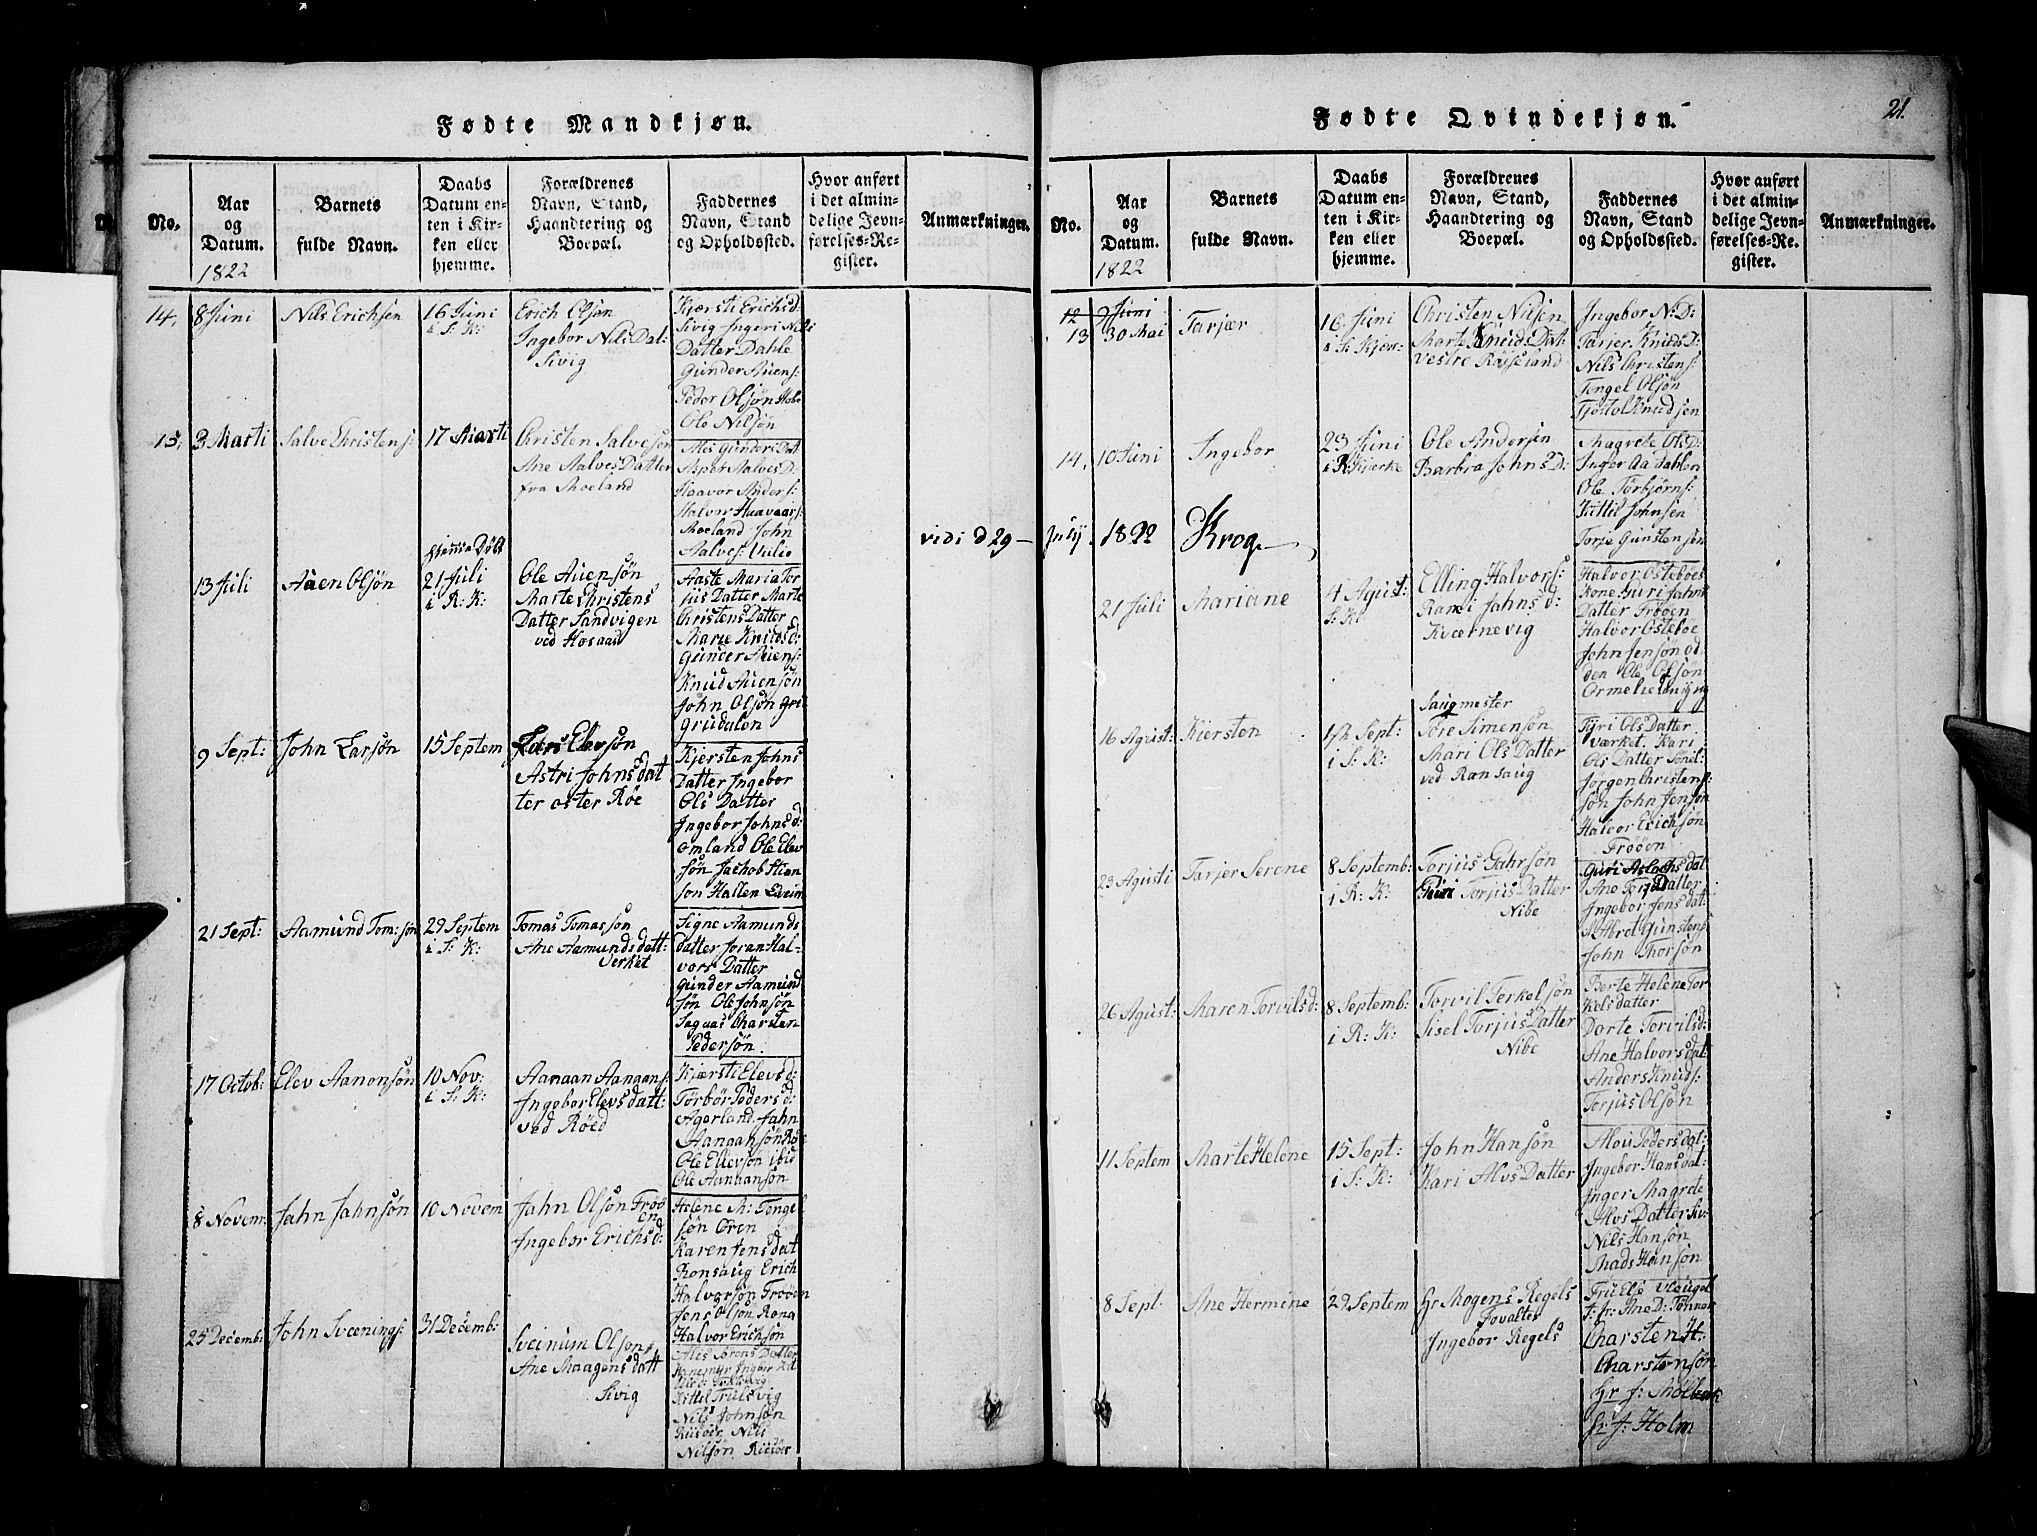 Fødte Mandkjøn.
No.
Aar
og
Datum.
1822
Barnets
fulde Navn.
Daabs
Datum en-
ten i Kir-
ken eller
hjemme.
Forældrenes
Navn, Stand,
Haandtering og
Boepæl.
Faddernes
Navn, Stand
og Opholdssted.
Hvor anført
i det almin-
delige Jevn-
førelses-Re-
gister.
Anmærkninger.
14.
8 Juni
Nils Erichsen
16 Juni
i S: K:
Erich Olsen
Ingebor Nils Dat:
Sivig
Kjærsti Erichsd:
Sivig Ingeri Nils
Datter Dahle
Gunder Auens:
Peder Olsøn Hobe
Ole Nilsøn
15.
3 Marti
Salve Christens:
17 Marti
Christen Salvesen
Ane Aalves Datter
fra Moeland
Gunders Dat
Aalves D:
Haavor Anders:
Halvor Haavaars:
Moeland John
Aalves:
13 Juli
Auen Olsøn
hjemme Døbt
21 Juli
i R: K:
Ole Auensøn
Marte Christens
Datter Sandvigen
ved Hosaas
Aaste Maria Tor
jus Datter Marte
Christens Datter
Marie Knuds d:
Gunder Auens:
Knud Auensøn
John Olsøn gri
grudalen
9 Sept:
John Larsøn
15 Septem
Lars Elevsøn
Astri Johns dat
ter oster Røe
Kjersten Johns
Datter Ingebor
Ols Datter
Ingebor Johns d:
omland Ole Elev
søn Jachob Stian
son Hallen
21 Sept:
Aamund Tom:søn
29 Septem
i S: K:
Tomas Tomassøn
Ane Aamunds datt:
Verket
Signe Aamunds
datter Joran Hal-
vors Datter
Gunder Aamund
søn Ole Johnsøn
Charsten
Pedersøn.
17 Octob:
Elev Aanonsøn
10 Nov:
i S: K:
Aanaan Aanaans:
Ingebor Elevs datt:
ved Røed
Kjærsti Elevs d:
Torbør Peders d:
Agerland Jahn
Aanaansøn Røe
Ole Ellevsøn ibid
Ole Aanhansøn
8 Novem:
Jahn Jahnsøn
10 Novem
Jahn Olsøn Frøø
en
Ingebor Erichs d:
Helene M: Tengel
søn Øren
Karen Jens dat
Ronsaug Erich
Halvorsøn Frøøen
Jens Olsøn Rona
Halvor Erichsøn
25 Decemb:
John Sveenings:
31 Decemb:
Sveinum Olson
Ane Maagens datt
Sivig
Ales Sørens Datter
Hanemyr Ingber
Kittel Trulsvig
Nils Johnsøn
Risøer, Nils
Nilsøn, Risøer
vidi d 29 – July 1822 Krog
Fødte Qvindekjøn.
21.
No.
Aar
og
Datum.
1822
Barnets
fulde Navn.
Daabs
Datum en-
ten i Kir-
ken eller
hjemme.
Forældrenes
Navn, Stand,
Haandtering og
Boepæl.
Faddernes
Navn, Stand
og Opholdssted.
Hvor anført
i det almin-
delige Jevn-
førelses-Re-
gister.
Anmærkninger.
12
Juni
13
30 Mai
Tarjær
16 Juni
i S: Kjær:
Christen Nilsen
Marte Knuds Dat
Vestre Røsseland
Ingebor N: D:
Tarjer Knuds D:
Nils Christens:
Tengel Olsøn
Tjøstol Knudsen
14.
10 Juni
Ingebor
23 Juni
i R: Kjerke
Ole Andersen
Barbra Johns D:
Magrete Ols D:
Inger Aa dahlen
Ole Torbjørns:
Kittil Johnsen
Torje Gunstensøn
21 Juli
Mariane
4 Agust:
S: K:
Elling Halvors:
Rami Jahns d:
Kværnevig
Halvor Ostebøes
Kone Guri Jahns
Datter Frøøen
Halvor Osteboe
John Jensøn od
den Ole Olsøn
16 Agust:
Kiersten
1/2 Sept:
i S: K:
Saugmester
Tore Simensøn
Mari Ols Datter
ved Rænsaug
Ols Datter
Værket. Kari
Ols Datter
Jørgen Christens:
søn John Jensøn
Halvor Erichsøn
Frøøen
23 Agusti
Tarjer Serene
8 Septemb:
i R: K:
Torjus Gahrsøn
Guri Torjus Datter
Nibe
Guri Aslachs dat
Ane Torj Datter
Ingebor Jens dat:
Gunstens:
John Thorsøn
26 Agust:
Maren Torvils d:
8 Septemb:
i R: K:
Torvil Terkelsøn
Sisel Torjus Datter
Nibe
Berte Helene Tor
kelsdatter
Dorte Torvilsd:
Ane Halvors dat:
Anders Knuds:
Torjus Olsøn
11 Septem
Marte Helene
15 Sept:
i S: K:
John Hansøn
Kari Alvs Datter
Peders dat:
Ingebor Hans dat:
Inger Magrete
Alvs Datter Siv:
Nils Hansøn
Mads Hansøn
8 Sept.
Ane Hermine
29 Septem
Hr Mogens Regels
Tovaltes
Ingebor Regels
Fru Else
Ane D: Tønner
Charsten H:
Charstensøn
Hr
Hr J: Holm